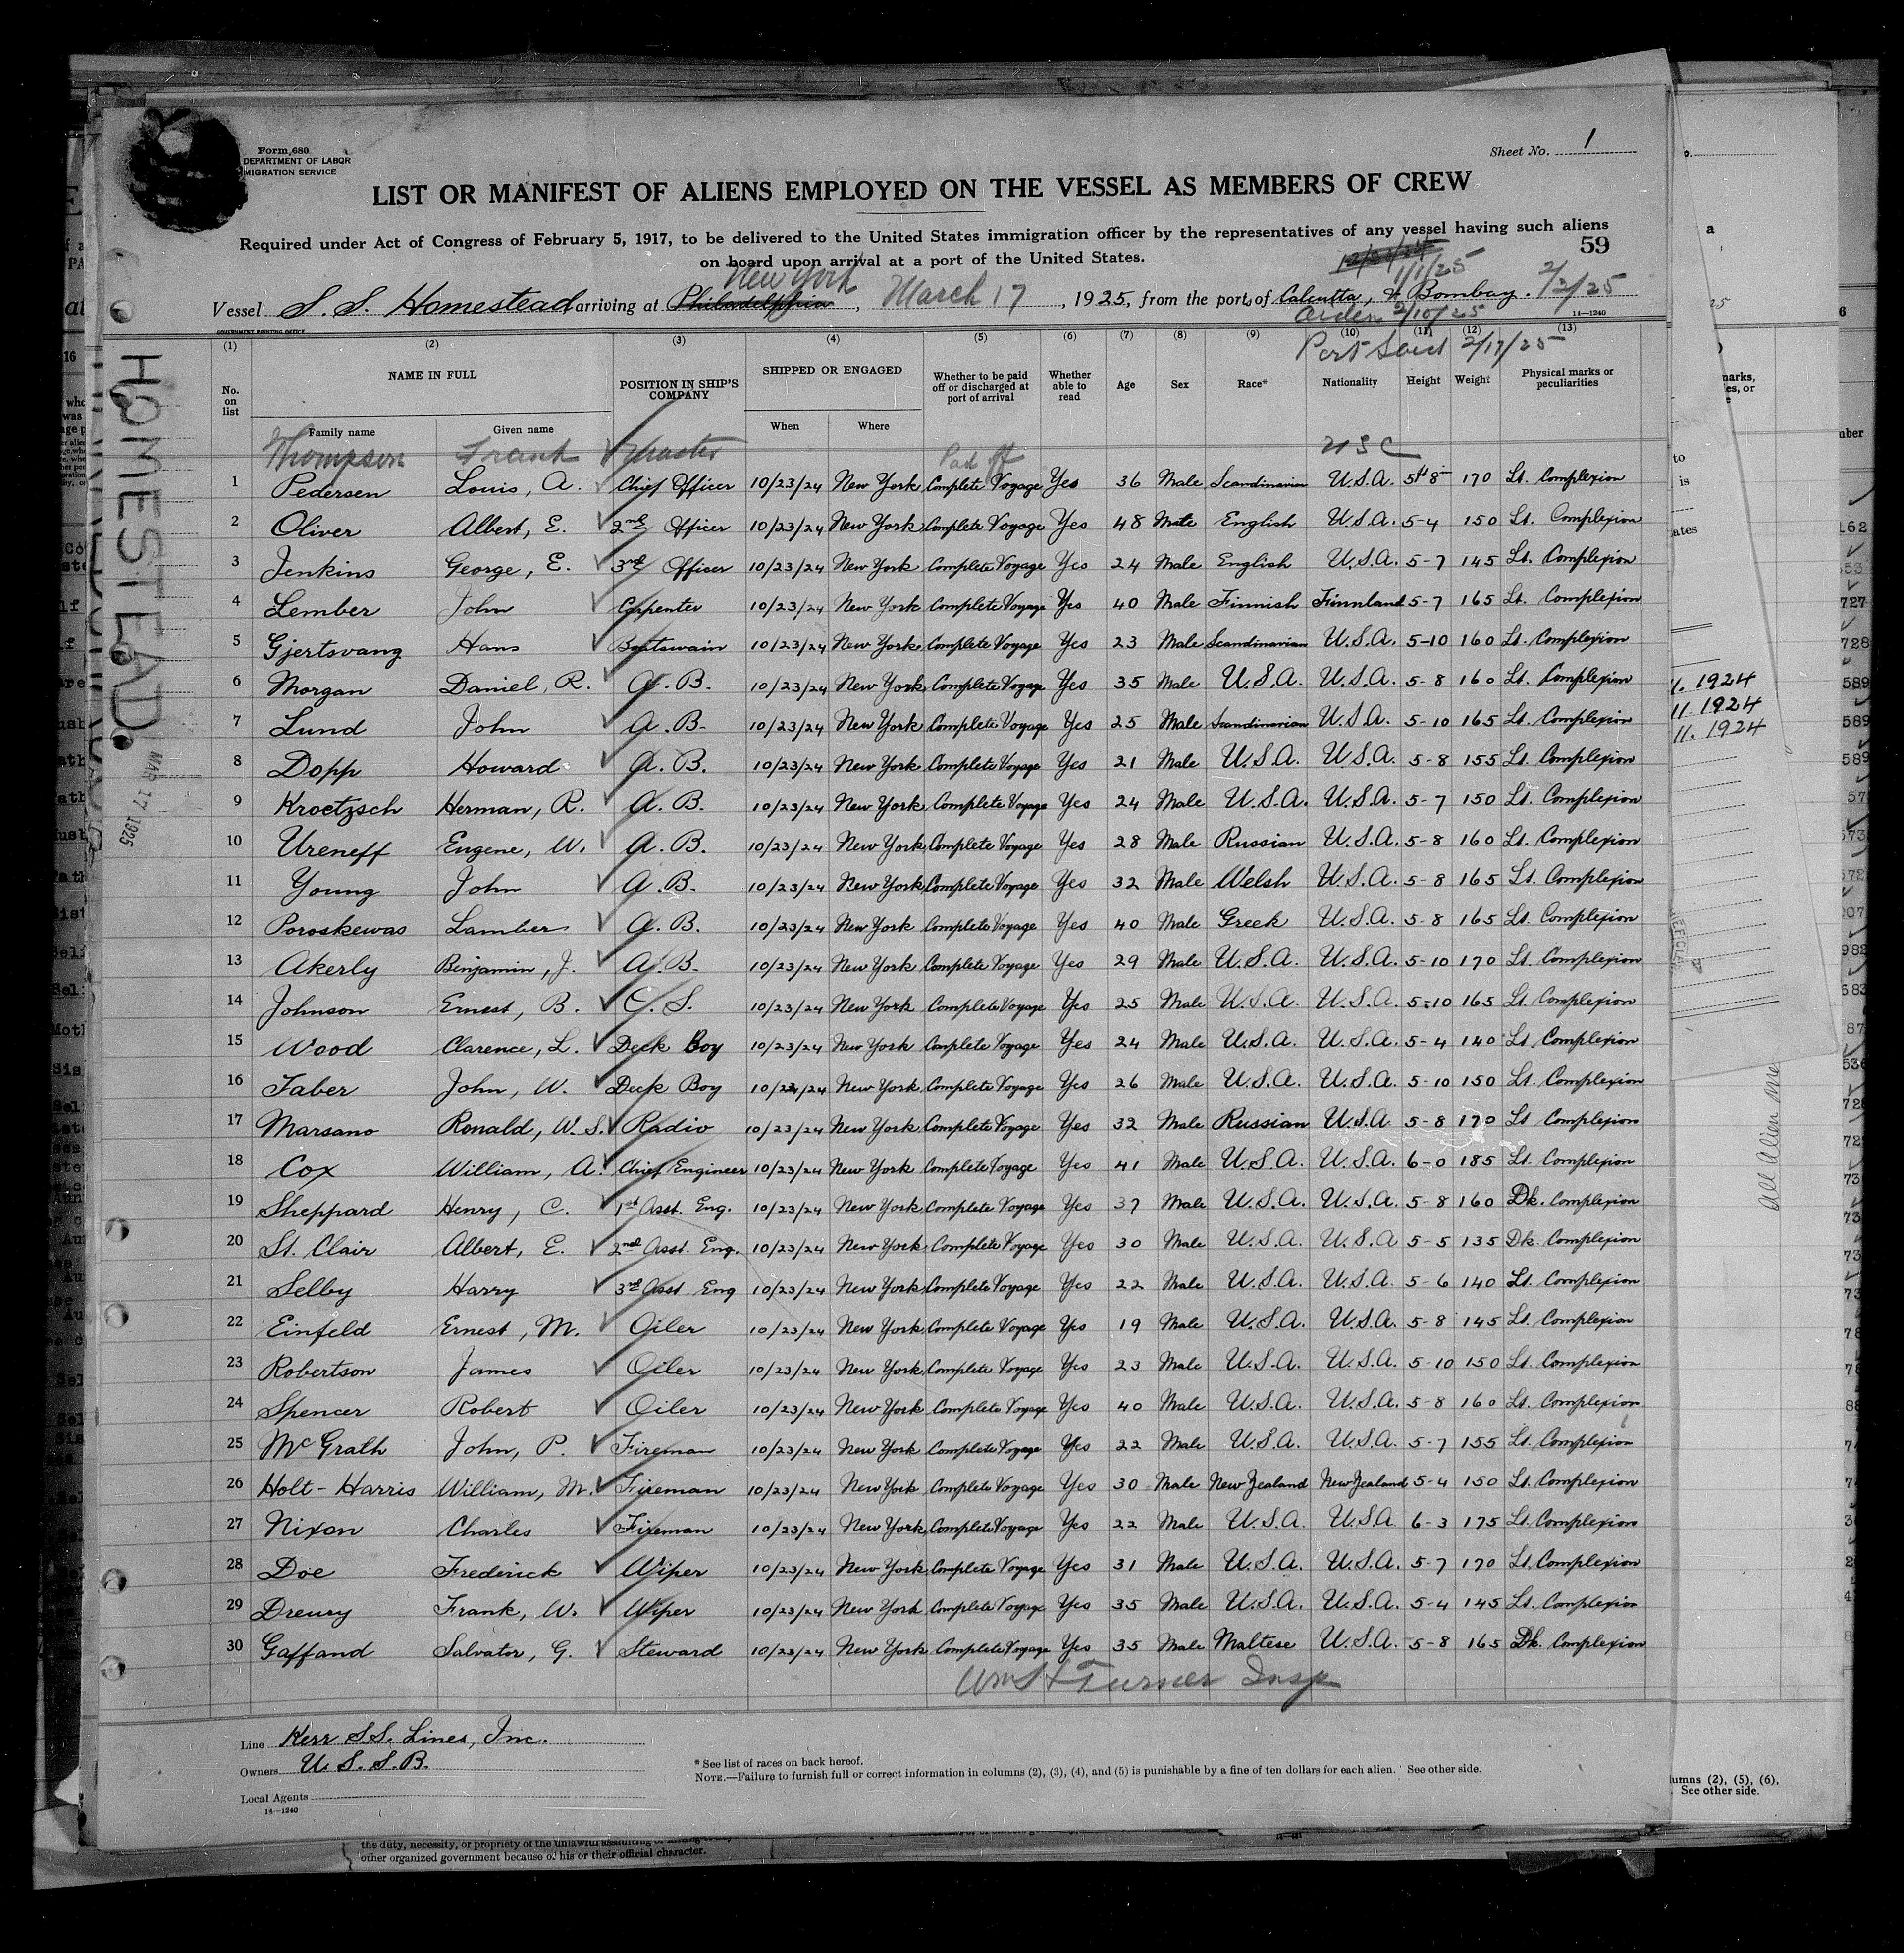 Form 680
DEPARTMENT OF LABOR
MIGRATION SERVICE
Sheet No. 1
LIST OR MANIFEST OF ALIENS EMPLOYED ON THE VESSEL AS MEMBERS OF CREW
Required under Act of Congress of February 5, 1917, to be delivered to the United States immigration officer by the representatives of any vessel having such aliens
on board upon arrival at a port of the United States.
59
New York 1/1/25
Vessel S. S. Homestead arriving at Philadelphia, March 17, 1925, from the ports of Calcutta, & Bombay. 2/2/25
Aiden 2/10/25
GOVERNMENT PRINTING OFFICE
14—1240
Port Said 2/17/25
(1) (2) (3) (4) (5) (6) (7) (8) (9) (10) (11) (12) (13)
No. on list NAME IN FULL POSITION IN SHIP'S COMPANY SHIPPED OR ENGAGED Whether to be paid off or discharged at port of arrival Whether able to read Age Sex Race* Nationality Height Weight Physical marks or peculiarities
Family name Given name When Where
Thompson Frank Master Paid off USC
1 Pedersen Louis, A. Chief Officer 10/23/24 New York Complete Voyage Yes 36 Male Scandinavian U.S.A. 5ft 8in 170 Lt. Complexion
2 Oliver Albert, E. 2nd Officer 10/23/24 New York Complete Voyage Yes 48 Male English U.S.A. 5-4 150 Lt. Complexion
3 Jenkins George, E. 3rd Officer 10/23/24 New York Complete Voyage Yes 24 Male English U.S.A. 5-7 145 Lt. Complexion
4 Lember John Carpenter 10/23/24 New York Complete Voyage Yes 40 Male Finnish Finnland 5-7 165 Lt. Complexion
5 Gjertsvang Hans Boatswain 10/23/24 New York Complete Voyage Yes 23 Male Scandinavian U.S.A. 5-10 160 Lt. Complexion
6 Morgan Daniel, R. A.B. 10/23/24 New York Complete Voyage Yes 35 Male U.S.A. U.S.A. 5-8 160 Lt. Complexion
7 Lund John A.B. 10/23/24 New York Complete Voyage Yes 25 Male Scandinavian U.S.A. 5-10 165 Lt. Complexion
8 Dopp Howard A.B. 10/23/24 New York Complete Voyage Yes 21 Male U.S.A. U.S.A. 5-8 155 Lt. Complexion
9 Kroetzsch Herman, R. A.B. 10/23/24 New York Complete Voyage Yes 24 Male U.S.A. U.S.A. 5-7 150 Lt. Complexion
10 Ureneff Eugene, W. A.B. 10/23/24 New York Complete Voyage Yes 28 Male Russian U.S.A. 5-8 160 Lt. Complexion
11 Young John A.B. 10/23/24 New York Complete Voyage Yes 32 Male Welsh U.S.A. 5-8 165 Lt. Complexion
12 Poroskewas Lamber A.B. 10/23/24 New York Complete Voyage Yes 40 Male Greek U.S.A. 5-8 165 Lt. Complexion
13 Akerly Benjamin, J. A.B. 10/23/24 New York Complete Voyage Yes 29 Male U.S.A. U.S.A. 5-10 170 Lt. Complexion
14 Johnson Ernest, B. O.S. 10/23/24 New York Complete Voyage Yes 25 Male U.S.A. U.S.A. 5-10 165 Lt. Complexion
15 Wood Clarence, L. Deck Boy 10/23/24 New York Complete Voyage Yes 24 Male U.S.A. U.S.A. 5-4 140 Lt. Complexion
16 Faber John, W. Deck Boy 10/23/24 New York Complete Voyage Yes 26 Male U.S.A. U.S.A. 5-10 150 Lt. Complexion
17 Marsano Ronald, W.S. Radio 10/23/24 New York Complete Voyage Yes 32 Male Russian U.S.A 5-8 170 Lt. Complexion
18 Cox William, A. Chief Engineer 10/23/24 New York Complete Voyage Yes 41 Male U.S.A. U.S.A. 6-0 185 Lt. Complexion
19 Sheppard Henry, C. 1st Asst. Eng. 10/23/24 New York Complete Voyage Yes 37 Male U.S.A. U.S.A. 5-8 160 Dk. Complexion
20 St. Clair Albert, E. 2nd Asst. Eng. 10/23/24 New York Complete Voyage Yes 30 Male U.S.A. U.S.A 5-5 135 Dk. Complexion
21 Selby Harry 3rd Asst. Eng 10/23/24 New York Complete Voyage Yes 22 Male U.S.A. U.S.A. 5-6 140 Lt. Complexion
22 Einfeld Ernest, M. Oiler 10/23/24 New York Complete Voyage Yes 19 Male U.S.A. U.S.A. 5-8 145 Lt. Complexion
23 Robertson James Oiler 10/23/24 New York Complete Voyage Yes 23 Male U.S.A. U.S.A. 5-10 150 Lt. Complexion
24 Spencer Robert Oiler 10/23/24 New York Complete Voyage Yes 40 Male U.S.A. U.S.A. 5-8 160 Lt. Complexion
25 McGrath John, P. Fireman 10/23/24 New York Complete Voyage Yes 22 Male U.S.A. U.S.A. 5-7 155 Lt. Complexion
26 Holt-Harris William, M. Fireman 10/23/24 New York Complete Voyage Yes 30 Male New Zealand New Zealand 5-4 150 Lt. Complexion
27 Nixon Charles Fireman 10/23/24 New York Complete Voyage Yes 22 Male U.S.A. U.S.A. 6-3 175 Lt. Complexion
28 Doe Frederick Wiper 10/23/24 New York Complete Voyage Yes 31 Male U.S.A. U.S.A. 5-7 170 Lt. Complexion
29 Dreury Frank, W. Wiper 10/23/24 New York Complete Voyage Yes 35 Male U.S.A. U.S.A. 5-4 145 Lt. Complexion
30 Gaffand Salvator, G. Steward 10/23/24 New York Complete Voyage Yes 35 Male Maltese U.S.A. 5-8 165 Dk. Complexion
Wm H Turner Insp
Line Kerr S.S. Lines, Inc.
Owners U.S.S.B.
Local Agents
14—1240
* See list of races on back hereof.
NOTE.—Failure to furnish full or correct information in columns (2), (3), (4), and (5) is punishable by a fine of ten dollars for each alien. See other side.
HOMESTEAD
MAR 17 1925
1. 1924
11. 1924
11. 1924
all alien
umns (2), (5), (6),
See other side.
the duty, necessity, or propriety of the unlawful assaulting
other organized government because of his or their official character.